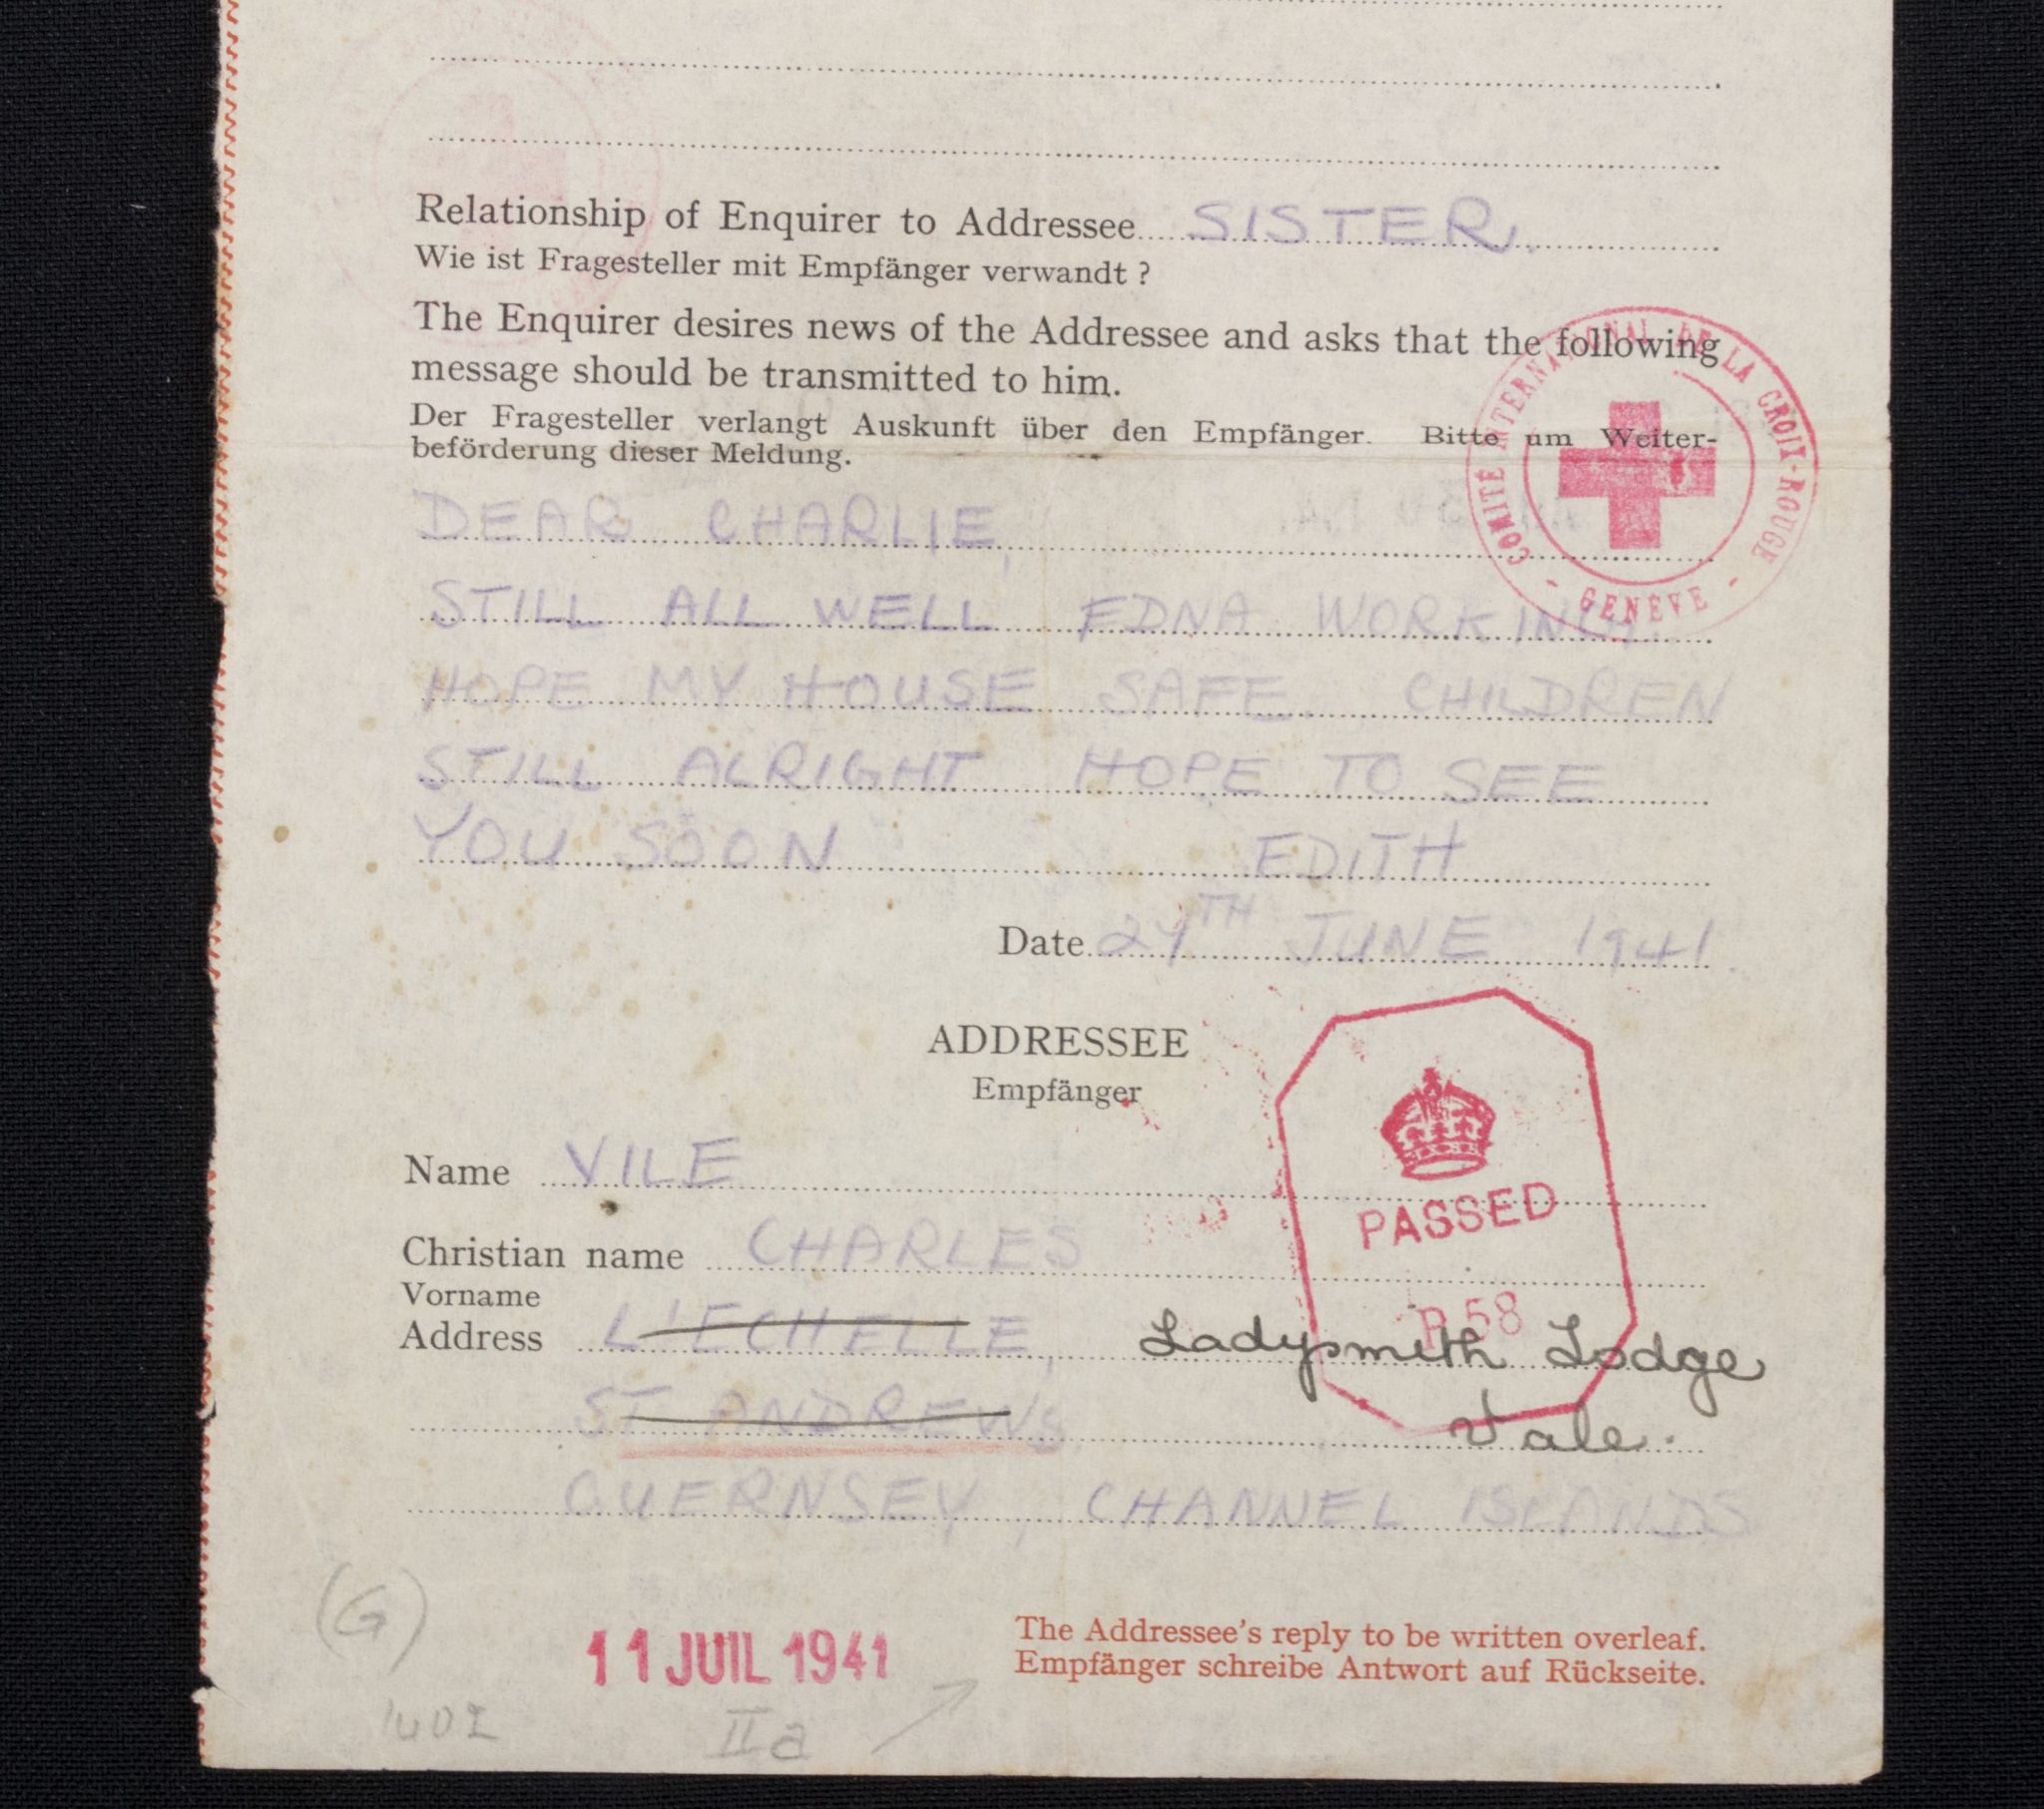 Relationship of Enquirer to Addressee SISTER.
Wie ist Fragesteller mit Empfänger verwandt ?
The Enquirer desires news of the Addressee and asks that the following
message should be transmitted to him.
Der Fragesteller verlangt Auskunft über den Empfänger. Bitte um Weiter-
beförderung dieser Meldung.
COMITÉ INTERNATIONAL DE LA CROIX-ROUGE
- GENÈVE -
DEAR CHARLIE,
STILL ALL WELL EDNA WORKING.
HOPE MY HOUSE SAFE. CHILDREN
STILL ALRIGHT HOPE TO SEE
YOU SOON EDITH
Date 24TH JUNE 1941
ADDRESSEE
Empfänger
PASSED
P.58
Name VILE
Christian name CHARLES
Vorname
Address L'ECHELLE, Ladysmith Lodge
ST ANDREWS Vale.
GUERNSEY, CHANNEL ISLANDS
(G)
11 JUIL 1941
The Addressee's reply to be written overleaf.
Empfänger schreibe Antwort auf Rückseite.
IIa